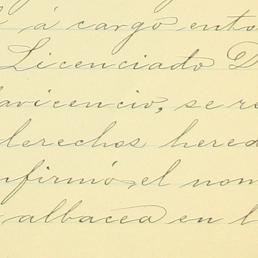 á cargo ento
Licenciado D
avicencio, se re
derechos hered
nfirmó el nom
albacea en l